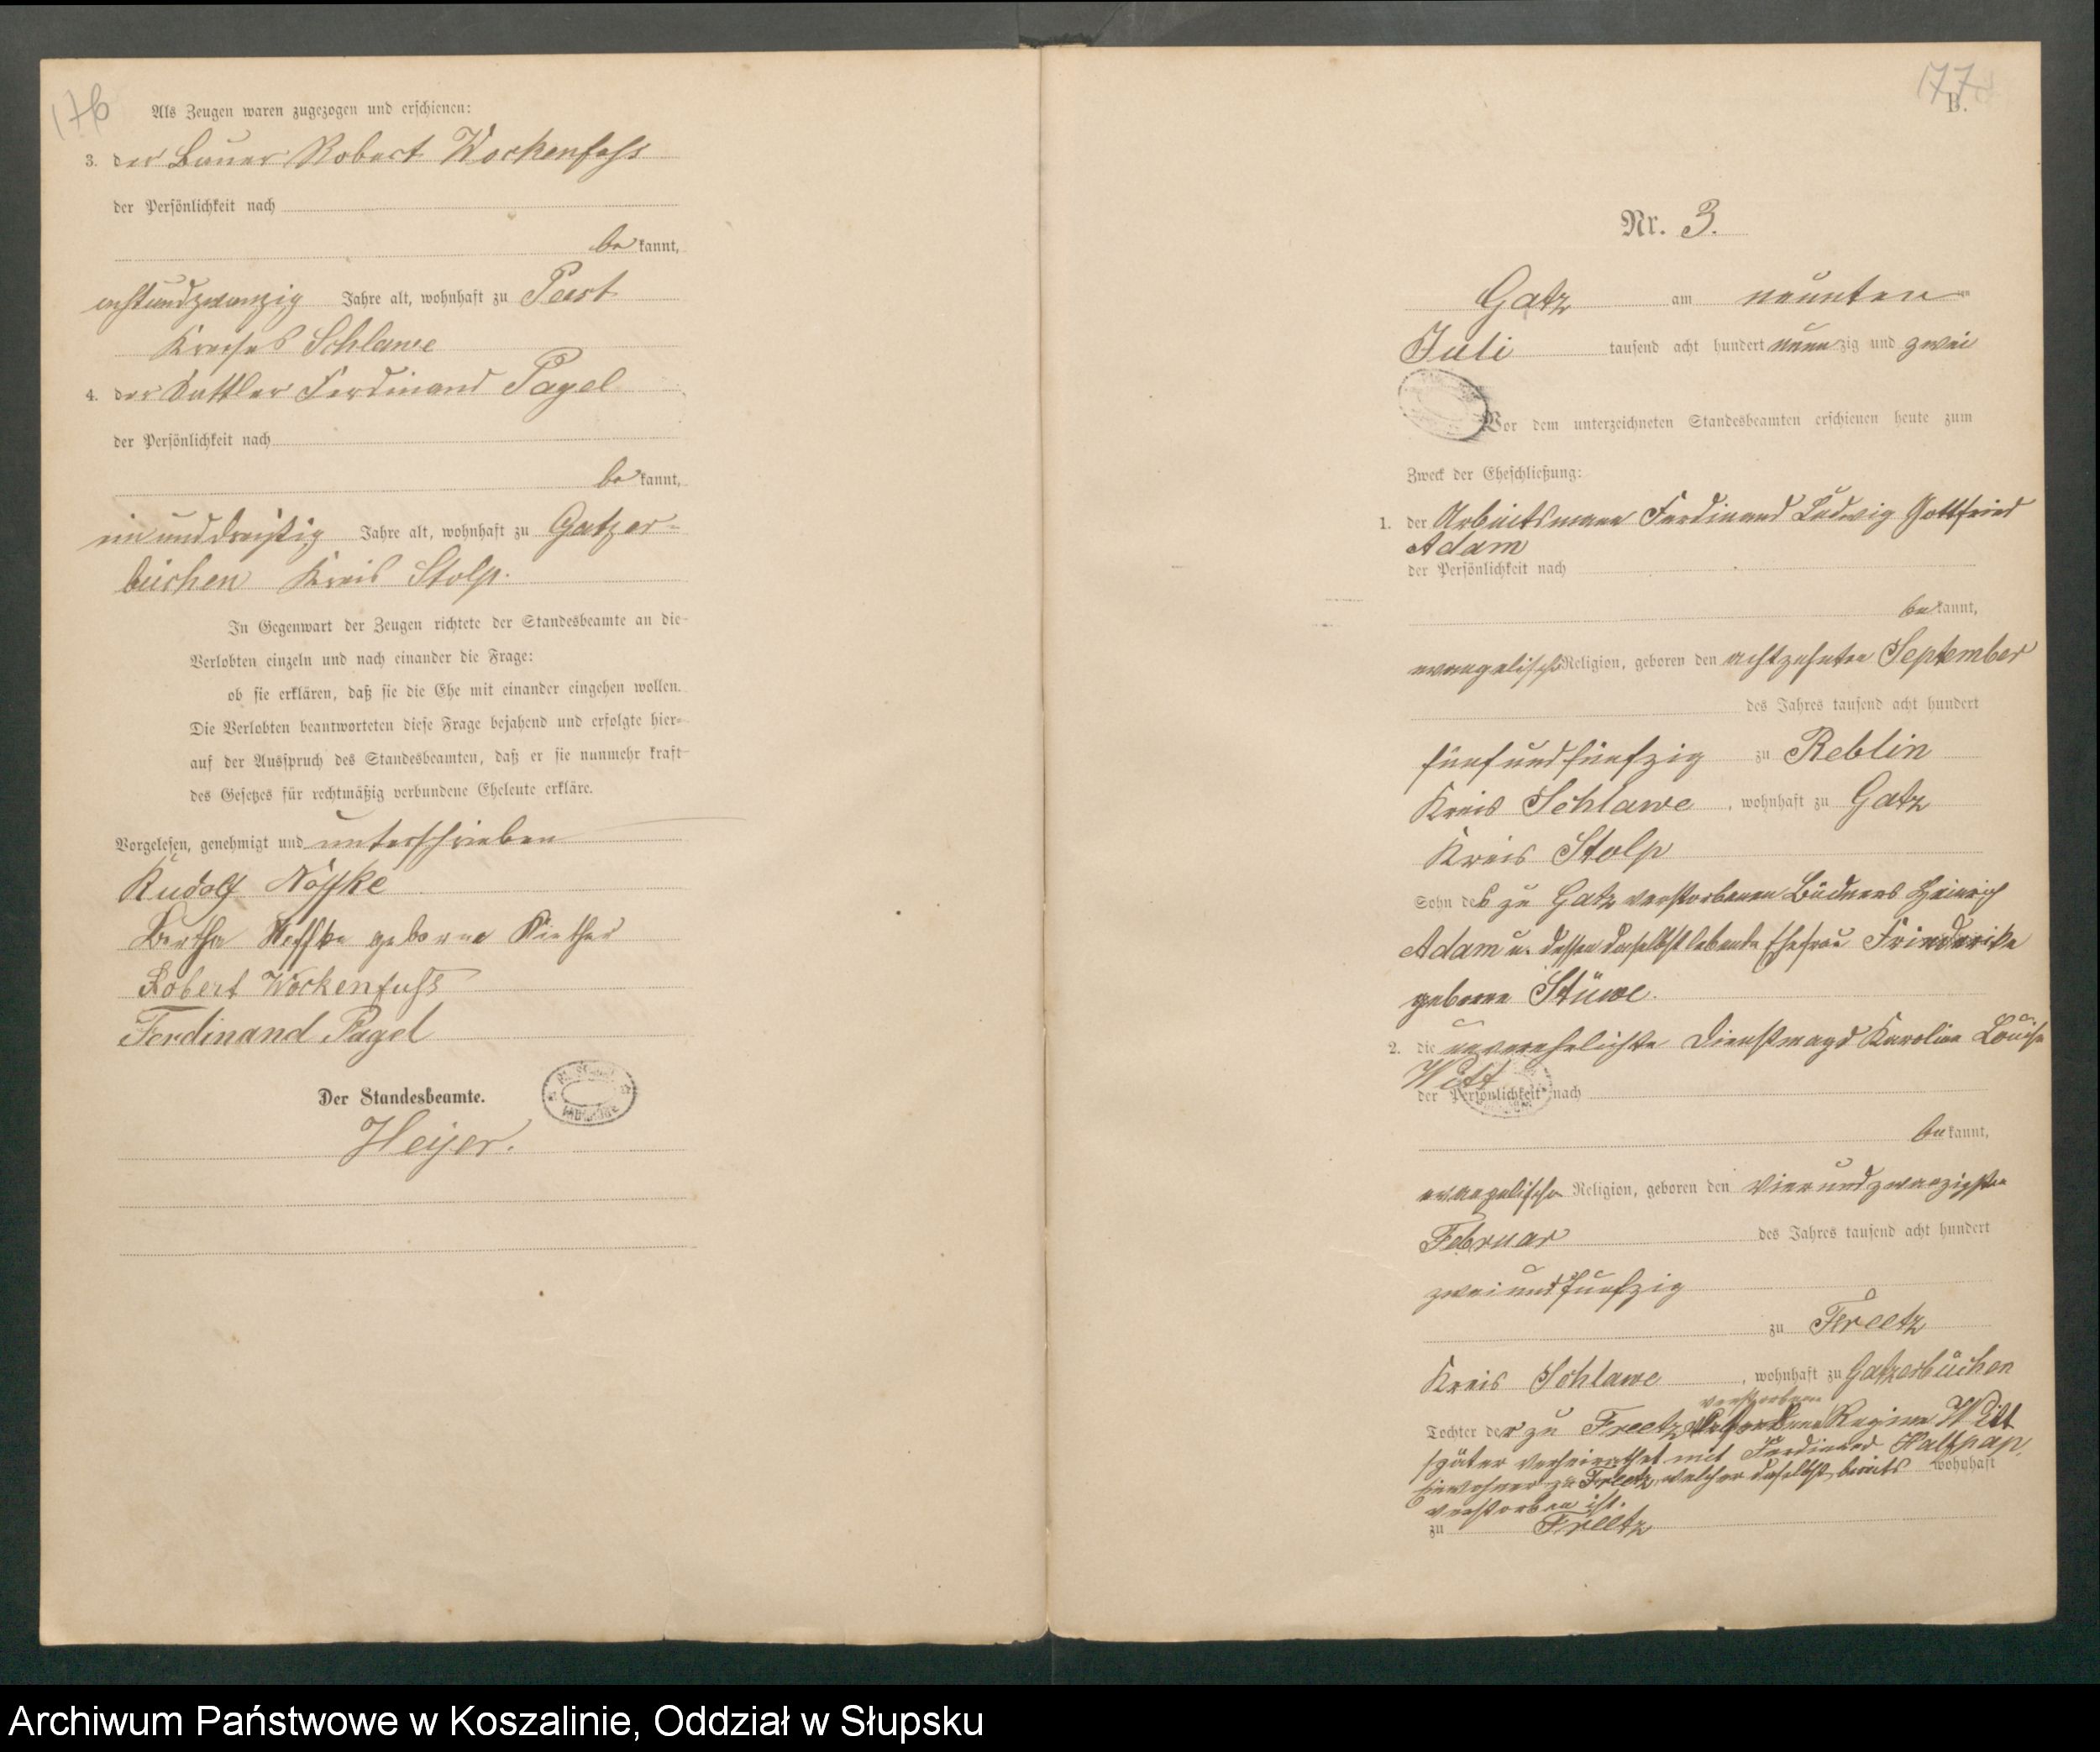 176
Als Zeugen waren zugezogen und erschienen:
3. der Bauer Robert Wockenfuss
der Persönlichkeit nach
bekannt,
achtundzwanzig Jahre alt, wohnhaft zu Peest
Kreises Schlawe
4. der Ferdinand Pagel
der Persönlichkeit nach
bekannt,
einunddreißig Jahre alt, wohnhaft zu Gatzer-
büchen Kreis Stolp.
In Gegenwart der Zeugen richtete der Standesbeamte an die
Verlobten einzeln und nach einander die Frage:
ob sie erklären, daß sie die Ehe mit einander eingehen wollen.
Die Verlobten beantworteten diese Frage bejahend und erfolgte hier-
auf der Ausspruch des Standesbeamten, daß er sie nunmehr kraft
des Gesetzes für rechtmäßig verbundene Eheleute erkläre.
Vorgelesen, genehmigt und unterschrieben
Rudolf Nöffke
Bertha Neffke geborne
Robert Wockenfuss
Ferdinand Pagel
Der Standesbeamte.
Heyer.
177
B.
Nr. 3.
Gatz am neunten
Juli tausend acht hundert neunzig und zwei
Vor dem unterzeichneten Standesbeamten erschienen heute zum
Zweck der Eheschließung:
1. der Arbeitsmann Ferdinand Ludwig Gottfried
Adam
der Persönlichkeit nach
bekannt,
evangelisch Religion, geboren den achtzehnten September
des Jahres tausend acht hundert
fünfundfünfzig zu Reblin
Kreis Schlawe, wohnhaft zu Gatz
Kreis Stolp
Sohn des zu Gatz verstorbenen Büdners Heinrich
Adam u. dessen daselbst lebende Ehefrau Friederike
geborne Stüwe.
2. die unverehelichte Dienstmagd Karoline Louise
Witt
der Persönlichkeit nach
bekannt,
evangelischer Religion, geboren den vierundzwanzigsten
Februar des Jahres tausend acht hundert
zweiundfünfzig
zu Freetz
Kreis Schlawe, wohnhaft zu Gatzerbüchen
verstorbenen
Tochter der zu Freetz Regine Witt
später verheirathet mit Ferdinand Halfpap,
Einwohner zu Freetz, welcher daselbst bereits wohnhaft
verstorben ist.
zu Freetz
Archiwum Państwowe w Koszalinie, Oddział w Słupsku